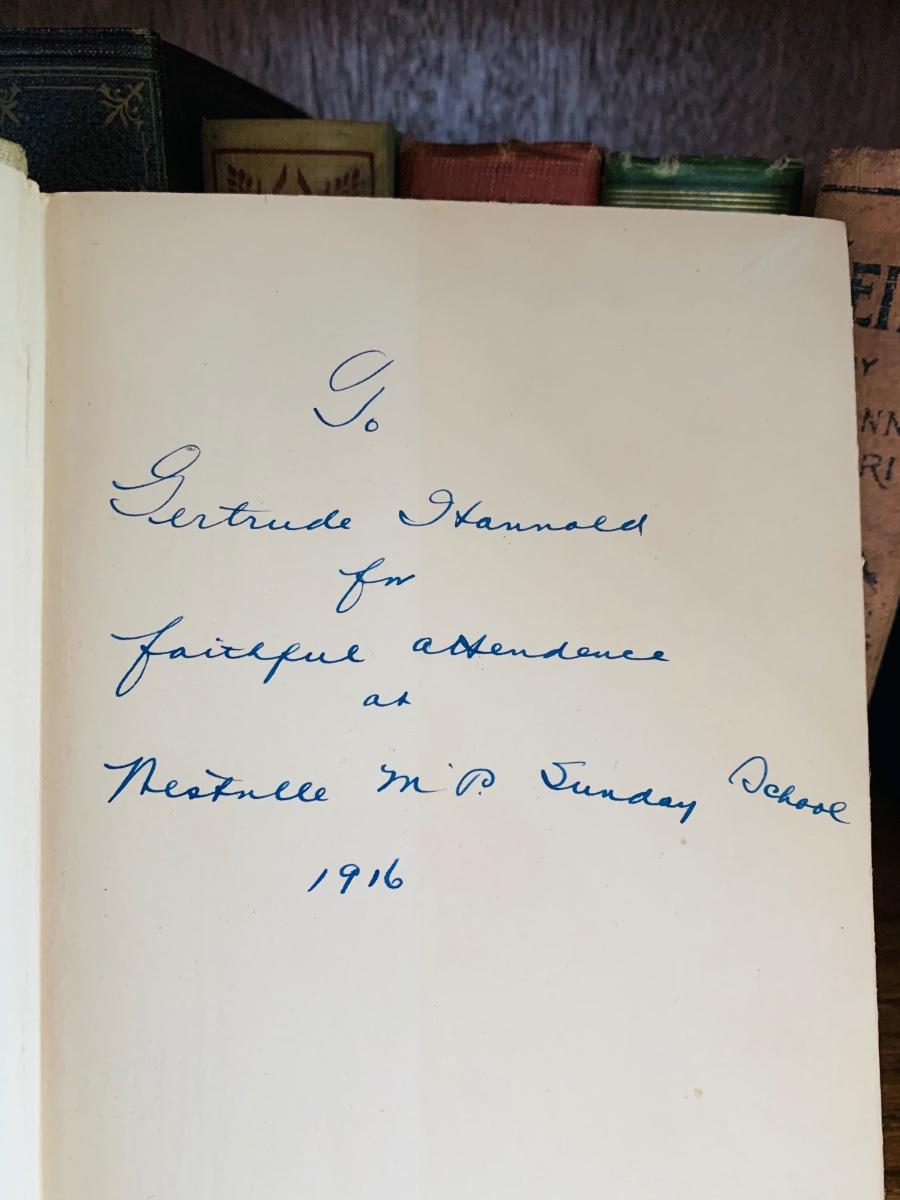 To
Gertrude Hannold
for
faithful attendence
at
Westville M.P. Sunday School
1916